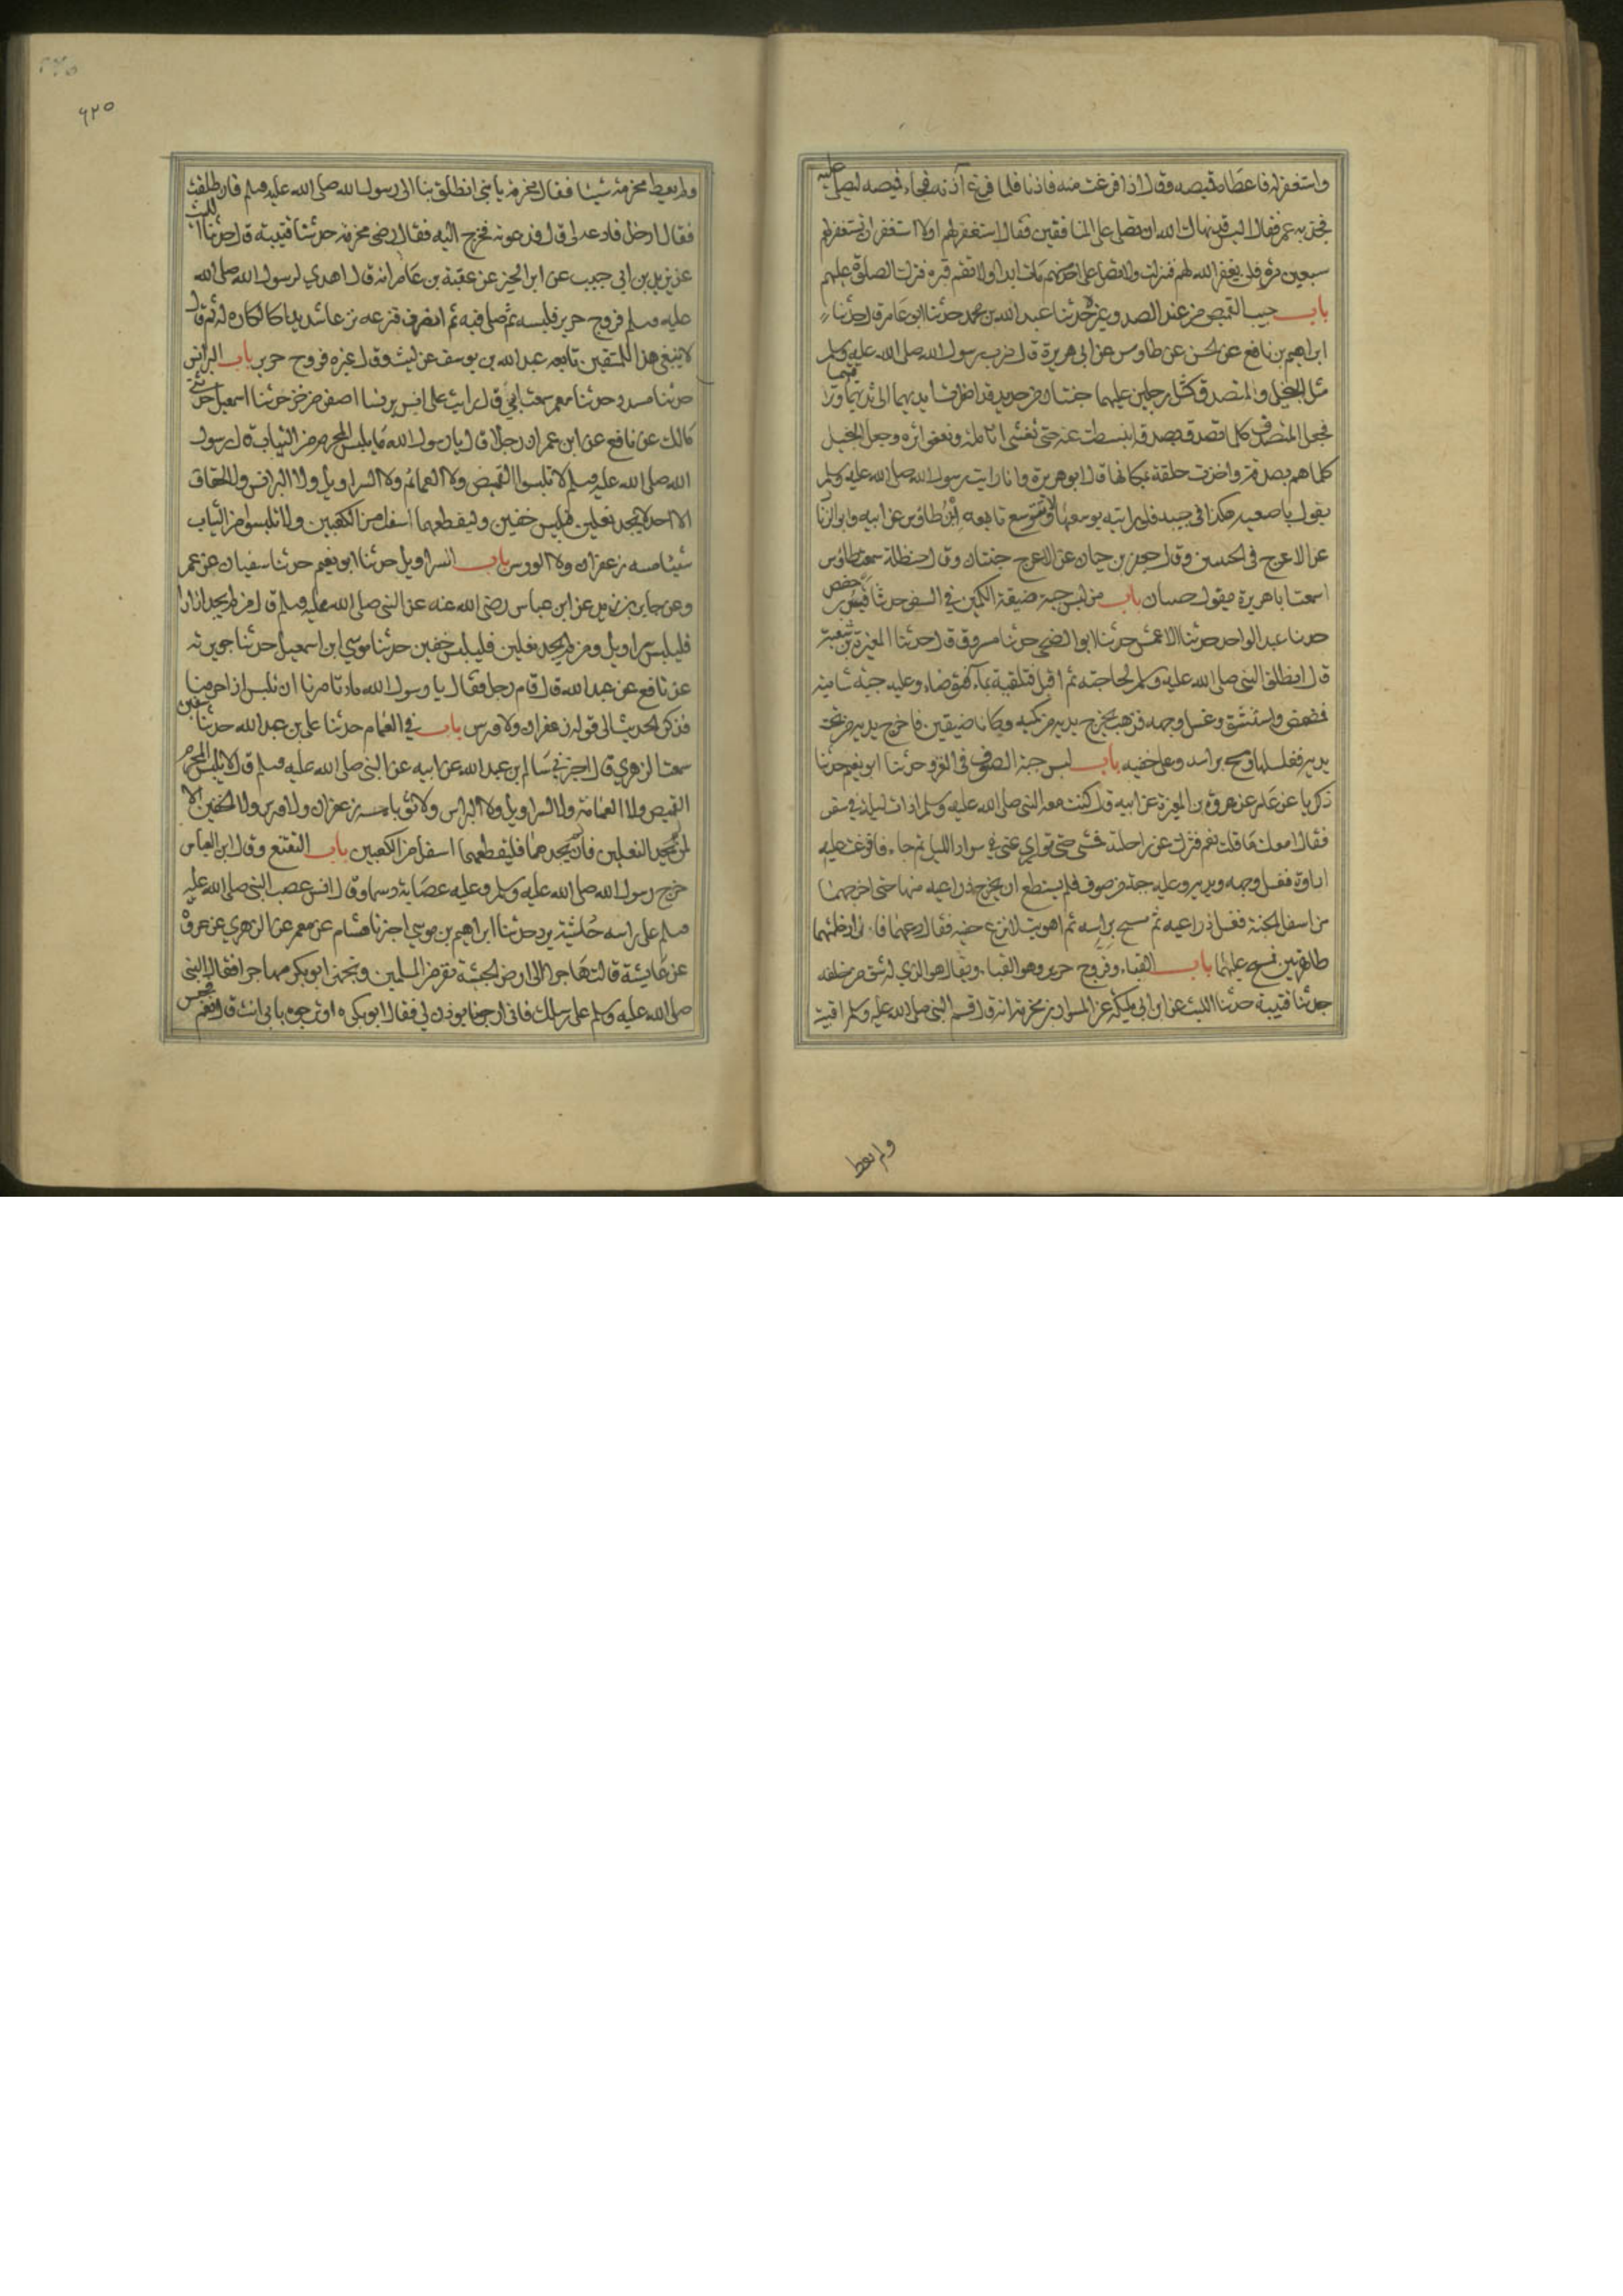 واستغفر له فاعطاه قميصه وقال اذا فرغت منه فاذنا فلما فرغ آذنه فجاء قميصه ليصلي عليه
فجذبه عمر فقال اليس قد نهاك الله ان تصلي على المنافقين فقال استغفر لهم اولا استغفر ان تستغفر لهم
سبعين مرة فلن يغفر الله لهم فنزلت ولا تصل على احد منهم مات ابدا ولا تقم قبره فترك الصلوة عليهم
باب جيب القميص من عند الصدر وغيره حدثنا عبد الله بن محمد حدثنا ابو عامر قال حدثنا
ابراهيم بن نافع عن الحسن عن طاوس عن ابي هريرة قال ضرب رسول الله صلى الله عليه وسلم
مثل البخيل والمتصدق كمثل رجلين عليهما جنتان من حديد قد اضطرت ايديهما الى ثديهما وتراقيهما
فجعل المتصدق كلما تصدق بصدقة انبسطت عنه حتى تغشى انامله وتعفو اثره وجعل البخيل
كلما هم بصدقة واخذت حلقة مكانها قال ابو هريرة وانا رايت رسول الله صلى الله عليه وسلم
يقول باصبعيه هكذا في جيبه فلو رايته يوسعها ولا تتوسع تابعه ابن طاوس عن ابيه وابو الزنا
عن الاعرج في الجبتين وقال جعفر بن حيان عن الاعرج جنتان وقال حنظلة سمعت طاوس
سمعت ابا هريرة يقول جبتان باب من لبس جبة ضيقة الكمين في السفر حدثنا قيس بن حفص
حدثنا عبد الواحد حدثنا الاعمش حدثنا ابو الضحى حدثنا مسروق قال حدثنا المغيرة بن شعبة
قال انطلق النبي صلى الله عليه وسلم لحاجته ثم اقبل فتلقيته بماء فتوضاء وعليه جبة شامية
فمضمض واستنشق وغسل وجهه فذهب يخرج يديه من كميه وكانا ضيقين فاخرج يديه من تحت
يديه فغسلهما ومسح براسه وعلى خفيه باب لبس جبة الصوف في الغزو حدثنا ابو نعيم حدثنا
زكريا عن عامر عن عروة بن المغيرة عن ابيه قال كنت مع النبي صلى الله عليه وسلم ذات ليلة في سفر
فقال امعك ماء قلت نعم فنزل عن راحلته فمشى حتى توارى عني في سواد الليل ثم جاء فافرغت عليه
اداوة فغسل وجهه ويديه وعليه جبة من صوف فلم يستطع ان يخرج ذراعيه منها حتى اخرجهما
من اسفل الجبة فغسل ذراعيه ثم مسح براسه ثم اهويت لانزع خفيه فقال دعهما فاني ادخلتهما
طاهرتين فمسح عليهما باب القباء وفروج حرير وهو القباء ويقال هو الذي له شق من خلفه
حدثنا قتيبة حدثنا الليث عن ابن ابي مليكة عن المسور بن مخرمة انه قال قسم النبي صلى الله عليه وسلم اقبية
ولم يعط
۶۲۵
ولم يعط مخرمة شيئا فقال مخرمة يا بني انطلق بنا الى رسول الله صلى الله عليه وسلم فانطلقت
فقال ادخل فادعه لي قال فدعوته فخرج اليه فقال رضي مخرمة حدثنا قتيبة قال حدثنا الليث
عن يزيد بن ابي حبيب عن ابي الخير عن عقبة بن عامر انه قال اهدي لرسول الله صلى الله
عليه وسلم فروج حرير فلبسه ثم صلى فيه ثم انصرف فنزعه نزعا شديدا كالكاره له ثم قال
لا ينبغي هذا للمتقين تابعه عبد الله بن يوسف عن ليث وقال غيره فروج حرير باب البرانس
حدثنا مسدد حدثنا معمر سمعت ابي قال رايت على انس برنسا اصفر من خز حدثنا اسمعيل حدثني
مالك عن نافع عن ابن عمر ان رجلا قال يا رسول الله ما يلبس المحرم من الثياب قال رسول
الله صلى الله عليه وسلم لا تلبسوا القميص ولا العمائم ولا السراويل ولا البرانس ولا الخفاف
الا احد لا يجد نعلين فليلبس خفين وليقطعهما اسفل من الكعبين ولا تلبسوا من الثياب
شيئا مسه زعفران ولا الورس باب السراويل حدثنا ابو نعيم حدثنا سفيان عن عمر
وعن جابر بن زيد عن ابن عباس رضي الله عنه عن النبي صلى الله عليه وسلم قال من لم يجد ازارا
فليلبس سراويل ومن لم يجد نعلين فليلبس خفين حدثنا موسي ابن اسمعيل حدثنا جويرية
عن نافع عن عبد الله قال قام رجل فقال يا رسول الله ماذ تامرنا ان نلبس اذا احرمنا
فذكر الحديث الى قوله زعفران ولا ورس باب في العمايم حدثنا علي بن عبد الله حدثنا سفين
سمعت الزهري قال اخبرني سالم ابن عبد الله عن ابيه عن النبي صلى الله عليه وسلم قال لا يلبس المحرم
القميص ولا العمامة ولا السراويل ولا البرانس ولا ثوبا مسه زعفران ولا ورس ولا الخفين الا
لمن لم يجد النعلين فان لم يجدهما فليقطعهما اسفل من الكعبين باب التقنع وقال ابن العباس
خرج رسول الله صلى الله عليه وسلم وعليه عصابة دسما وقال انس عصب النبي صلى الله عليه
وسلم على راسه حاشية برد حدثنا ابراهيم بن موسي اخبرنا هشام عن معمر عن الزهري عن عروة
عن عايشة قالت هاجر الى ارض الحبشة نفر من المسلمين وتجهز ابو بكر مهاجرا فقال النبي
صلى الله عليه وسلم على رسلك فاني ارجو ان يوذن لي فقال ابو بكر او ترجوه بابي انت قال نعم فحبس